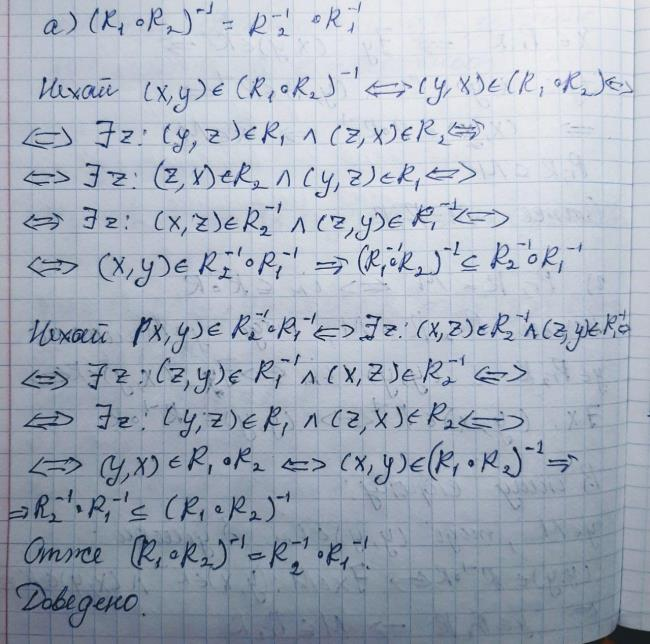 а) (R₁∘R₂)⁻¹ = R₂⁻¹∘R₁⁻¹
Нехай (x,y)∈(R₁∘R₂)⁻¹ ⟺ (y,x)∈(R₁∘R₂) ⟺
⟺ ∃z: (y,z)∈R₁ ∧ (z,x)∈R₂ ⟺
⟺ ∃z: (z,x)∈R₂ ∧ (y,z)∈R₁ ⟺
⟺ ∃z: (x,z)∈R₂⁻¹ ∧ (z,y)∈R₁⁻¹ ⟺
⟺ (x,y)∈R₂⁻¹∘R₁⁻¹ ⟹ (R₁⁻¹∘R₂)⁻¹ ⊆ R₂⁻¹∘R₁⁻¹
Нехай (x,y)∈R₂⁻¹∘R₁⁻¹ ⟺ ∃z: (x,z)∈R₂⁻¹∧(z,y)∈R₁⁻¹
⟺ ∃z: (z,y)∈R₁⁻¹ ∧ (x,z)∈R₂⁻¹ ⟺
⟺ ∃z: (y,z)∈R₁ ∧ (z,x)∈R₂ ⟺
⟺ (y,x)∈R₁∘R₂ ⟺ (x,y)∈(R₁∘R₂)⁻¹ ⟹
⟹ R₂⁻¹∘R₁⁻¹ ⊆ (R₁∘R₂)⁻¹
Отже (R₁∘R₂)⁻¹ = R₂⁻¹∘R₁⁻¹.
Доведено.